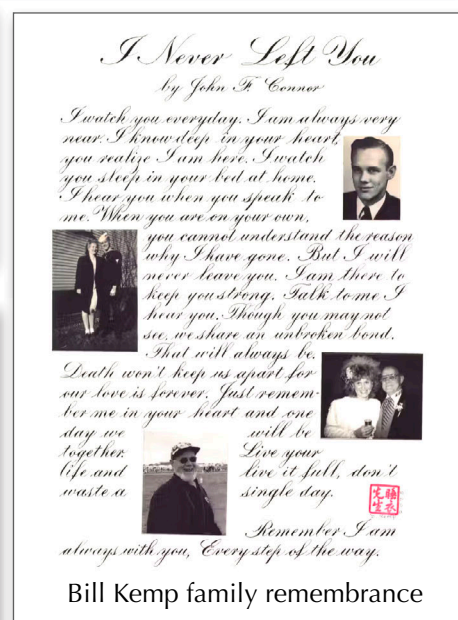 I Never Left You
by John F. Connor
I watch you everyday. I am always very
near. I know deep in your heart,
you realize I am here. I watch
you sleep in your bed at home.
I hear you when you speak to
me. When you are on your own,
you cannot understand the reason
why I have gone. But I will
never leave you. I am there to
keep you strong. Talk to me I
hear you. Though you may not
see, we share an unbroken bond.
That will always be.
Death won't keep us apart for
our love is forever. Just remem-
ber me in your heart and one
day we will be
together. Live your
life and live it full, don't
waste a single day.
Remember I am
always with you, Every step of the way.
Bill Kemp family remembrance